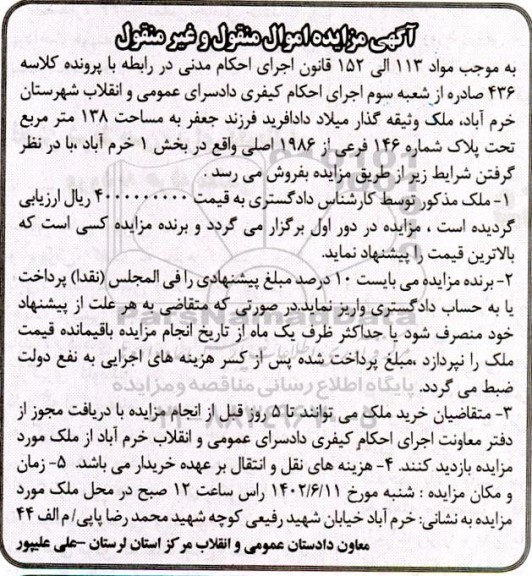 آگهی مزایده اموال منقول و غیر منقول
به موجب مواد ۱۱۳ الی ۱۵۲ قانون اجرای احکام مدنی در رابطه با پرونده کلاسه
۴۳۶ صادره از شعبه سوم اجرای احکام کیفری دادسرای عمومی و انقلاب شهرستان
خرم آباد، ملک وثیقه گذار میلاد دادافرید فرزند جعفر به مساحت ۱۳۸ متر مربع
تحت پلاک شماره ۱۴۶ فرعی از ۱۹۸۶ اصلی واقع در بخش ۱ خرم آباد ،با در نظر
گرفتن شرایط زیر از طریق مزایده بفروش می رسد .
۱- ملک مذکور توسط کارشناس دادگستری به قیمت ۴۰۰۰۰۰۰۰۰۰ ریال ارزیابی
گردیده است ، مزایده در دور اول برگزار می گردد و برنده مزایده کسی است که
بالاترین قیمت را پیشنهاد نماید.
۲- برنده مزایده می بایست ۱۰ درصد مبلغ پیشنهادی را فی المجلس (نقدا) پرداخت
یا به حساب دادگستری واریز نمایددر صورتی که متقاضی به هر علت از پیشنهاد
خود منصرف شود یا حداکثر ظرف یک ماه از تاریخ انجام مزایده باقیمانده قیمت
ملک را نپردازد ،مبلغ پرداخت شده پس از کسر هزینه های اجرایی به نفع دولت
ضبط می گردد.
۳- متقاضیان خرید ملک می توانند تا ۵ روز قبل از انجام مزایده با دریافت مجوز از
دفتر معاونت اجرای احکام کیفری دادسرای عمومی و انقلاب خرم آباد از ملک مورد
مزایده بازدید کنند. ۴- هزینه های نقل و انتقال بر عهده خریدار می باشد. ۵- زمان
و مکان مزایده : شنبه مورخ ۱۴۰۲/۶/۱۱ راس ساعت ۱۲ صبح در محل ملک مورد
مزایده به نشانی: خرم آباد خیابان شهید رفیعی کوچه شهید محمد رضا پاپی/م الف ۴۴
معاون دادستان عمومی و انقلاب مرکز استان لرستان -علی علیپور
ParsNamadData
پایگاه اطلاع رسانی مناقصه و مزایده